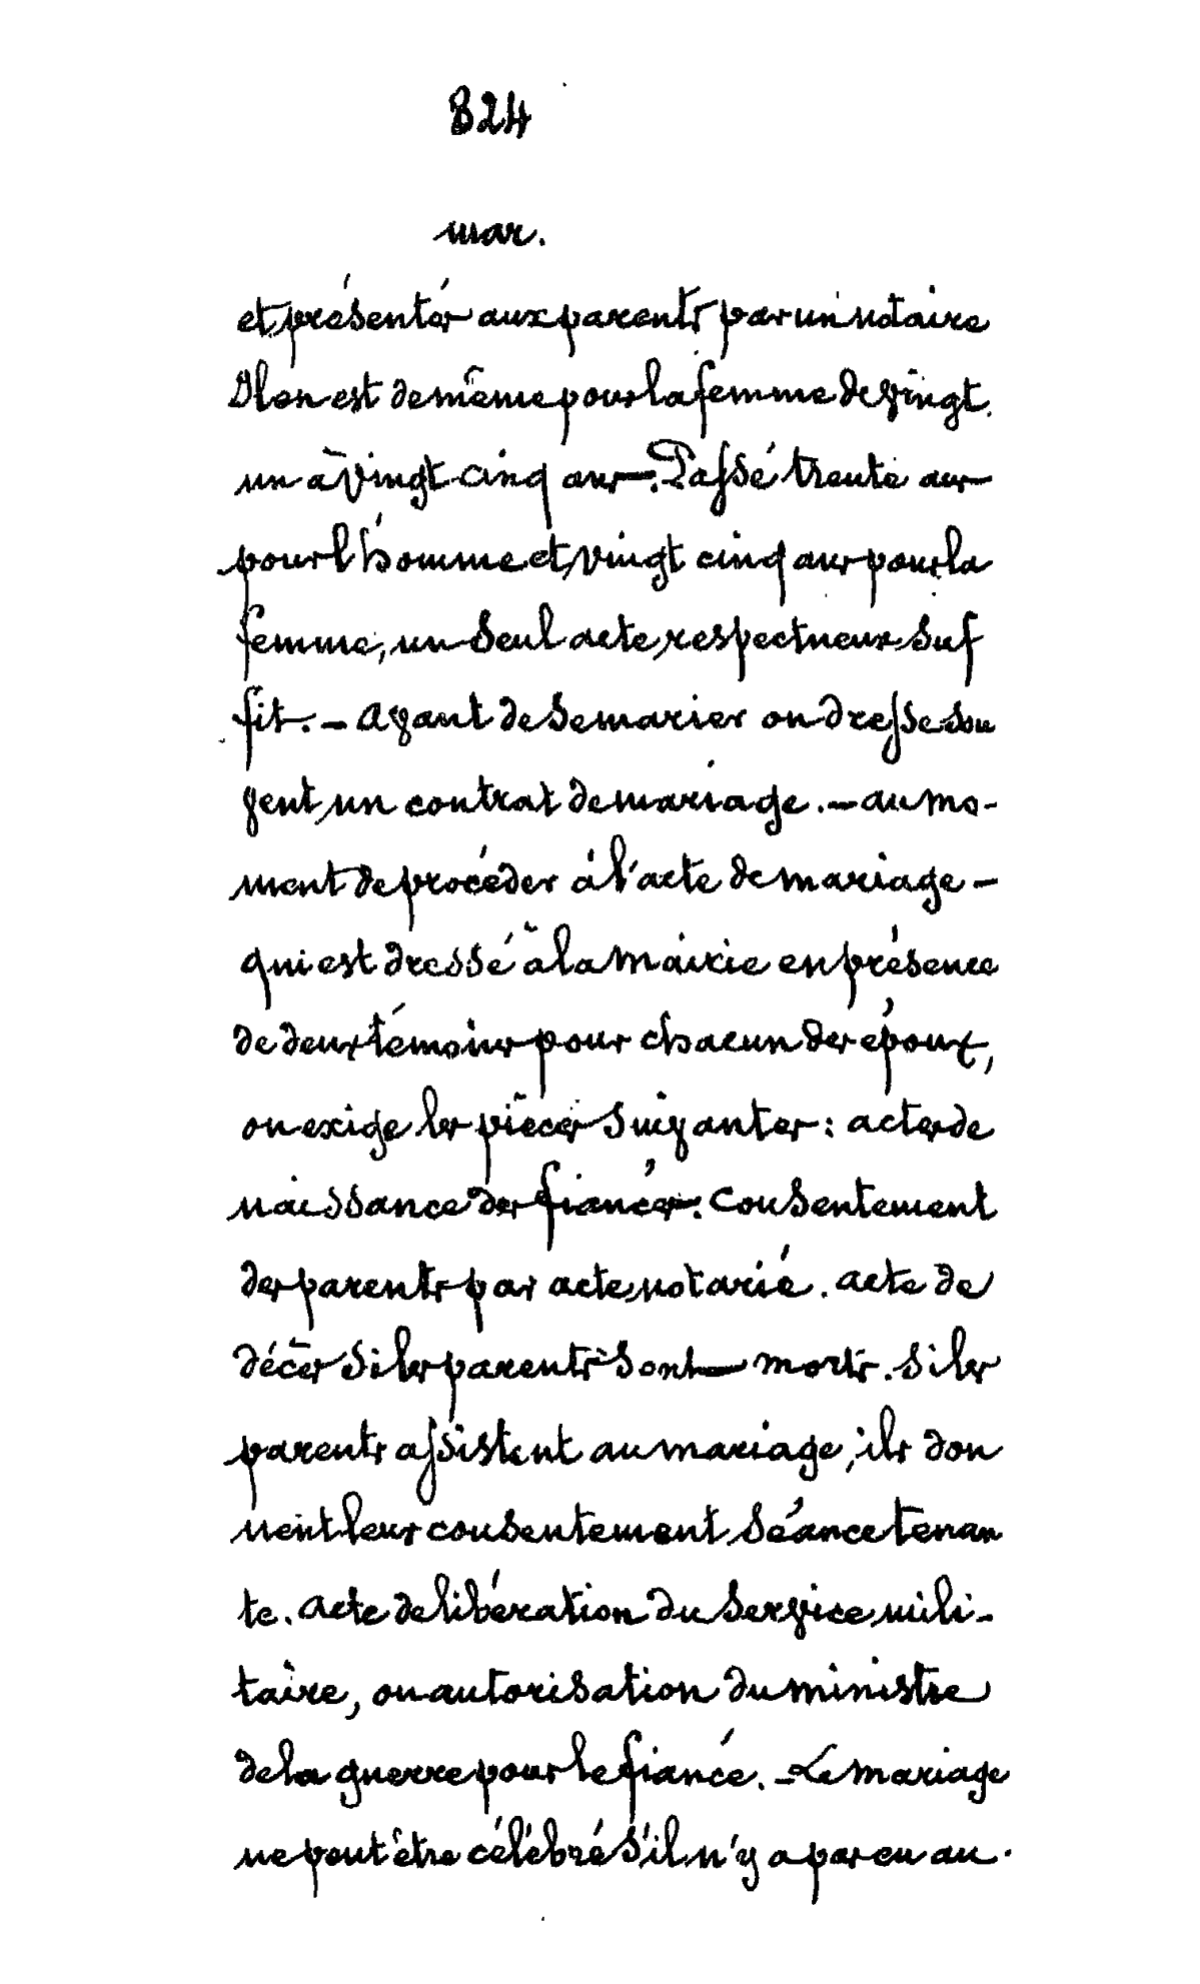 824
mar.
et présentés aux parents par un notaire
Il en est de même pour la femme de vingt
un à vingt cinq ans. Passé trente ans
pour l'homme et vingt cinq ans pour la
femme, un seul acte respectueux suf
fit. — Avant de se marier on dresse sou
vent un contrat de mariage. — au mo-
ment de procéder à l'acte de mariage —
qui est dressé à la mairie en présence
de deux témoins pour chacun des époux,
on exige les pièces suivantes : actes de
naissance des fiancés. Consentement
des parents par acte notarié. acte de
décès si les parents sont morts. si les
parents assistent au mariage, ils don
nent leur consentement séance tenan
te. acte de libération du service mili-
taire, ou autorisation du ministre
de la guerre pour le fiancé. — Le mariage
ne peut être célébré s'il n'y a pas eu au